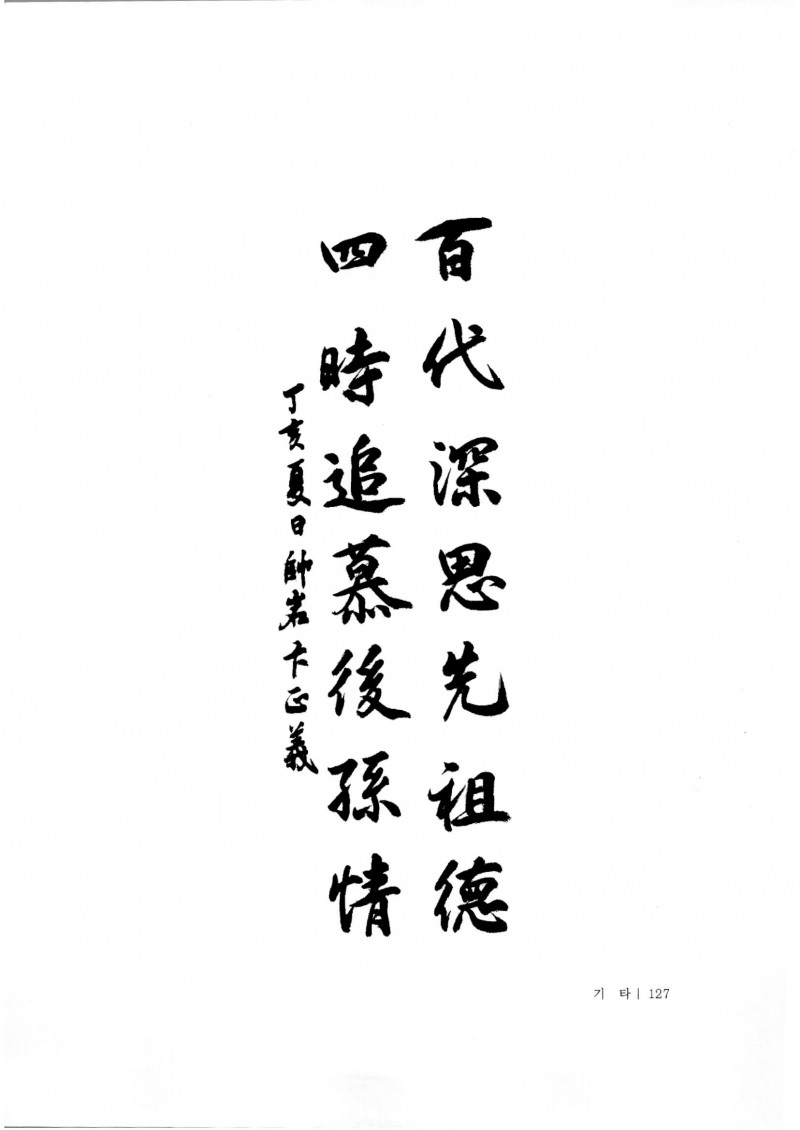 百代深恩先祖德
四時追慕後孫情
丁亥夏日帥岩卞正義
기 타 | 127